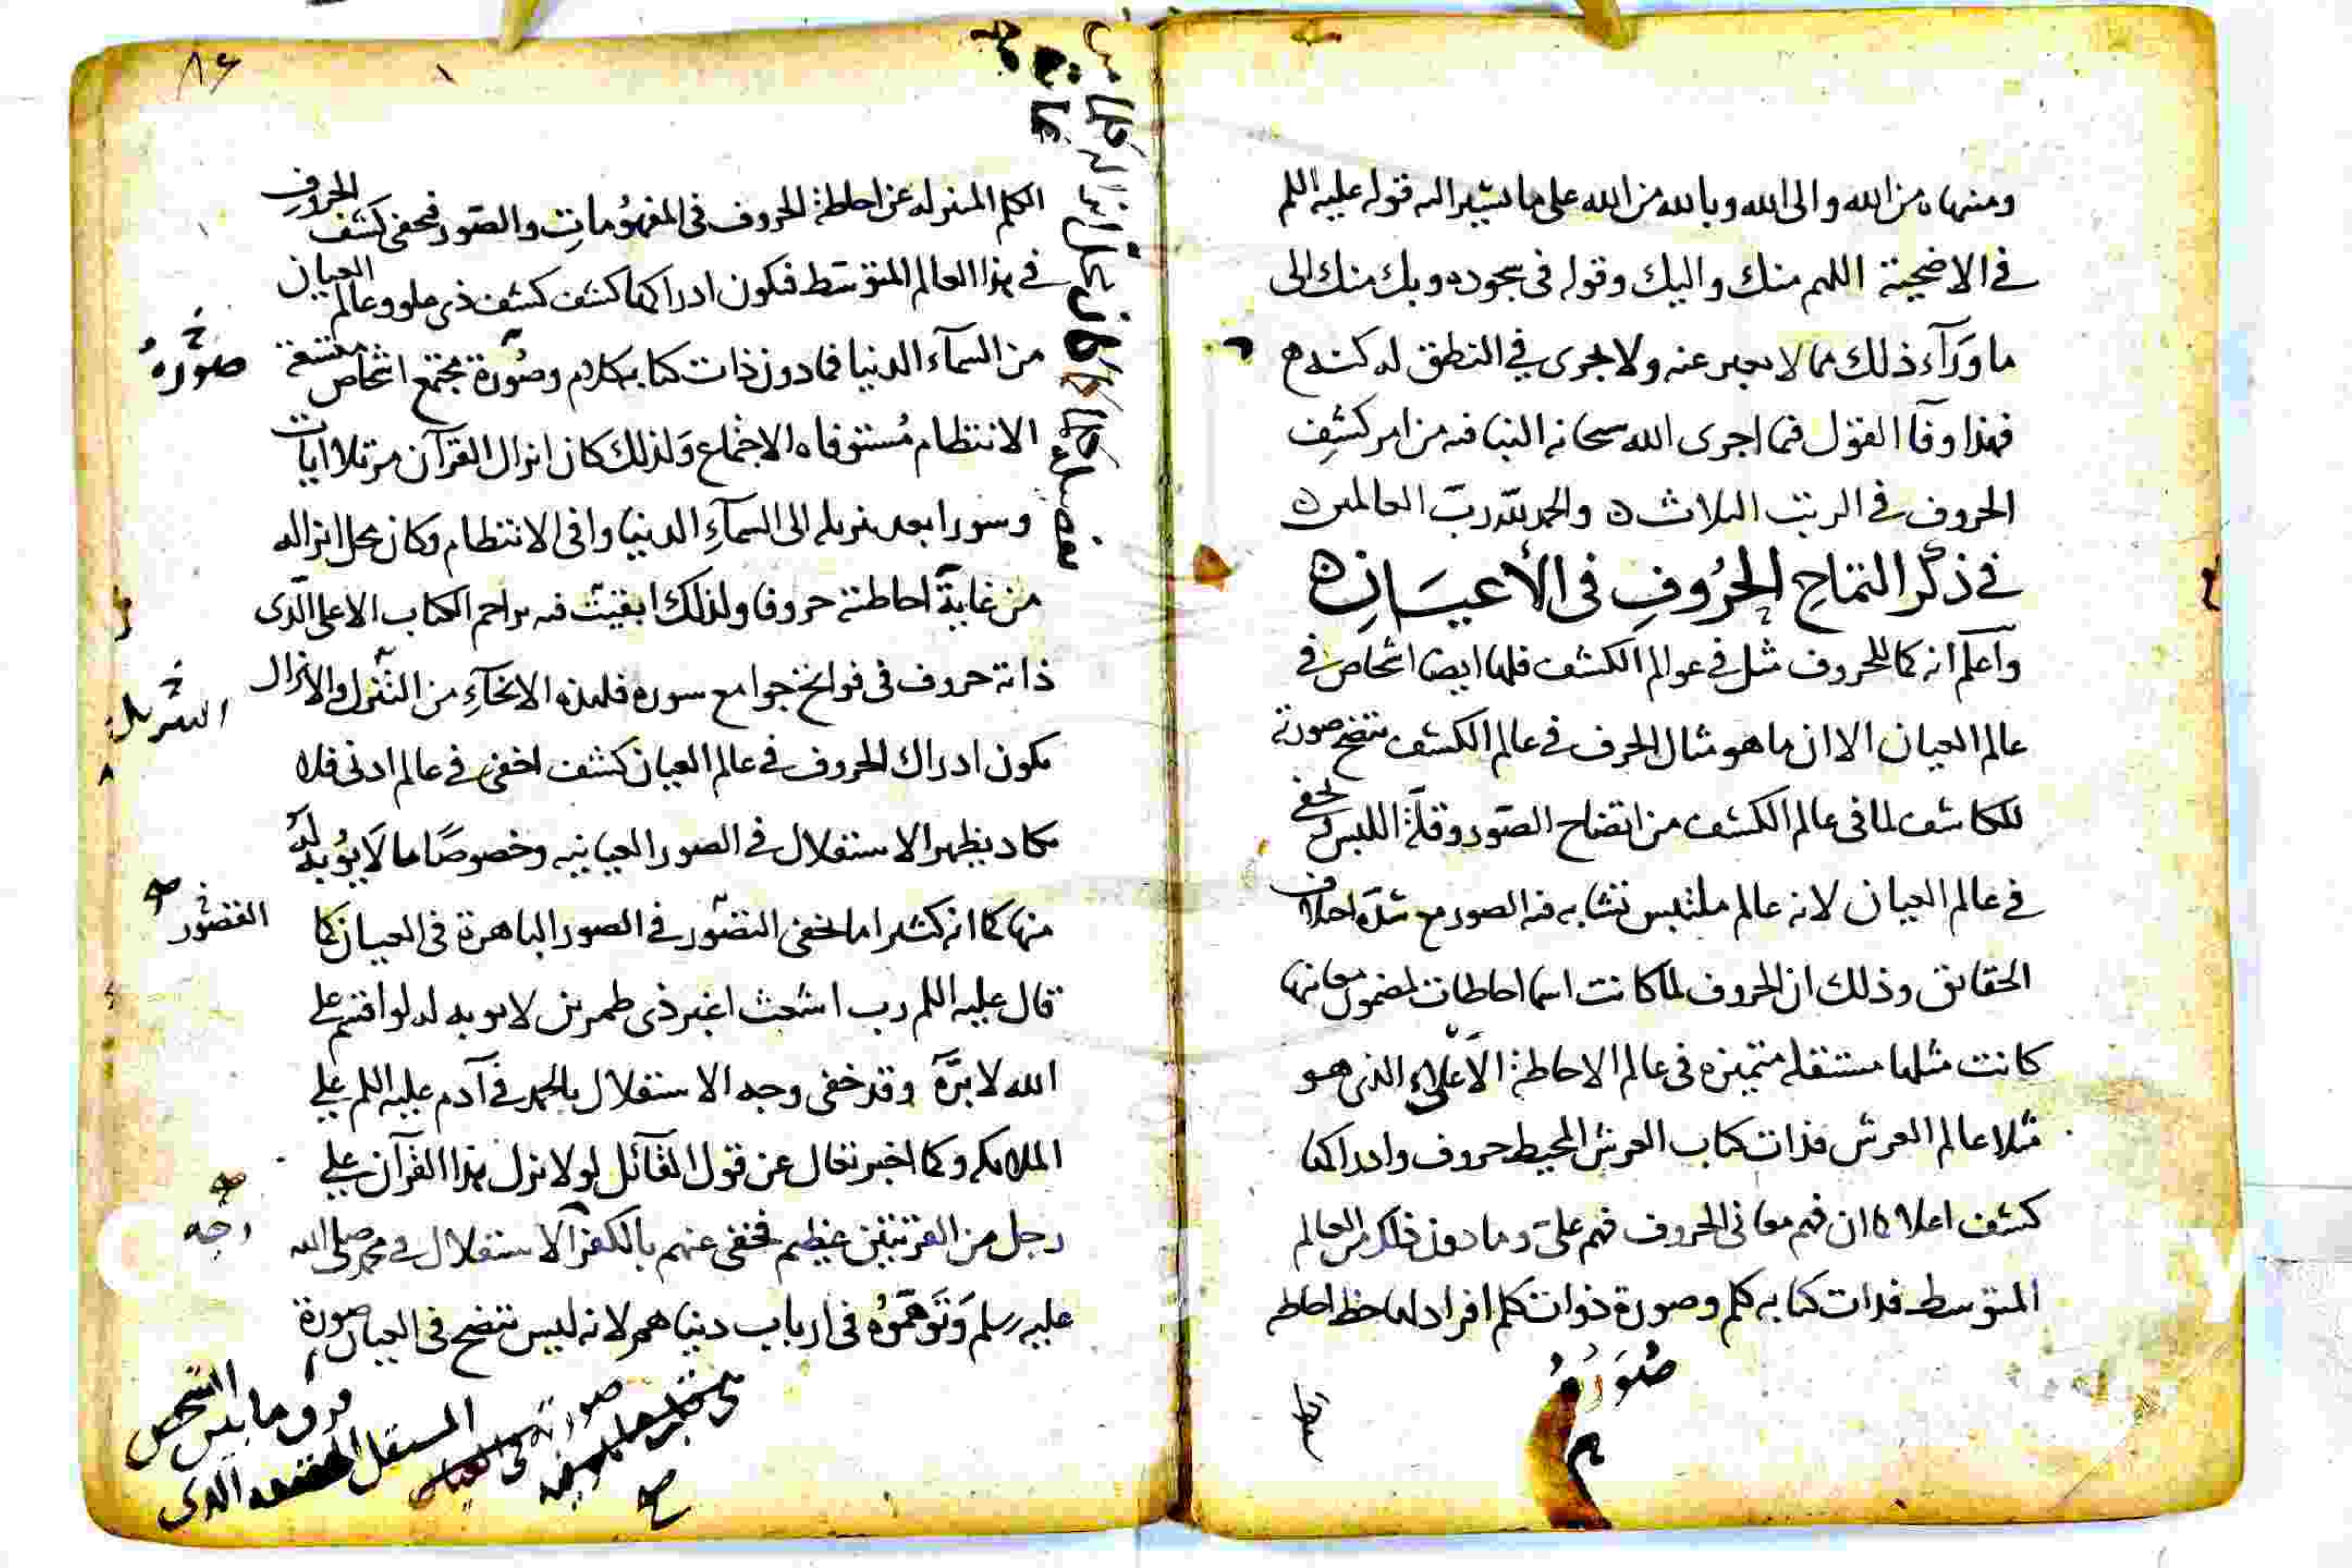 ومنها ه من الله والى الله وبالله من الله على ما يشير اليه قوله عليه السلم
في الاضحية اللهم منك واليك وقوله في سجوده وبك منك الى
ما ورآء ذلك مما لا يعبر عنه ولا يجرى في النطق له كنه
فهذا وفآ القول فيما اجرى الله سبحانه الينا فيه من امر كشف
الحروف في الرتب الثلاث ه والحمد لله رب العالمين ه
في ذكر التماح الحروف في الأعيان ه
واعلم انه كما للحروف مثل في عوالم الكشف فلها ايضا اشخاص في
عالم العيان الا ان ما هو مثال الحرف في عالم الكشف تتضح صورته
للمكاشف لما في عالم الكشف من اتضاح الصور وقلة اللبس ويخفى
في عالم العيان لانه عالم ملتبس تتشابه فيه الصور مع شدة اختلاف
الحقائق وذلك ان الحروف لما كانت اسما احاطات لمضمول معانيها
كانت مثلها مستقله متميزه في عالم الاحاطة الأعلاء الذي هو
مثلا عالم العرش فذات كتاب العرش المحيط حروف وادراكها
كشف اعلا كما ان فهم معاني الحروف فهم علىّ وما دون ذلك من العالم
المتوسط فذات كتابه كلم وصورة ذوات كلم افراد لها حظ احاطه
صُوَرُهُ
٨٦
الكلم المنزله عن احاطة الحروف في المفهومات والصور فيخفى كشف الحروف
في هذا العالم المتوسط فيكون ادراكها كشف كشف ذي علو وعالم العيان
من السمآء الدنيا فما دون ذات كتابه كلام وصورة مجتمع اشخاص متسقة
صوره
الانتظام مستوفاه الاجتماع ولذلك كان انزال القرآن مرتلا ايات
وسورا بعد تنزيله الى السمآء الدنيا وافى الانتظام وكان محل انزاله
من غاية احاطته حروفا ولذلك ابقيت فيه تراجم الكتاب الاعلى الذى
ذاته حروف في فواتح جوامع سوره فلهذه الانحآء من التنزل والانزال
التنزيل
يكون ادراك الحروف في عالم العيان كشف اخفى في عالم ادنى فلا
يكاد يظهر الاستقلال في الصور العيانيه وخصوصًا ما لا يؤبه له
منها كما انه كثيرا ما يخفى التصور في الصور الباهرة في العيان كما
القصور
قال عليه السلم رب اشعث اغبر ذي طمرين لا يوبه له لو اقسم على
الله لابرّه وقد خفى وجه الاستقلال بالحمد في آدم عليه السلم على
الملائكه وكما اخبر تعالى عن قول القآئل لولا نزل هذا القرآن على
رجل من القريتين عظيم فخفى عنهم بالكفر الاستقلال في محمد صلى الله
وجه
عليه وسلم وتوهموه في ارباب دنياهم لانه ليس تتضح في العيان صورة
فرق ما بين الشخص
المستقل الذى